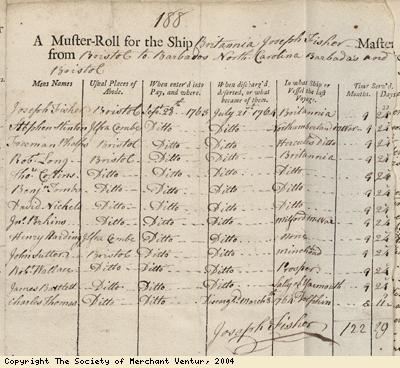 188
A Muster-Roll for the Ship Britannia Joseph Fisher Master
from Bristol to Barbados North Carolina Barbadas and
Bristol
Mens Names Usual Places of Abode. When enter'd into Pay, and where. When discharg'd deserted, or what became of them. In what Ship or Vessel the last Voyage. Time Serv'd. Months. Days
Joseph Fisher Bristol Sept. 28th 1763 July 21st 1764 Britannia 9 24
Stephen Ilfra Combe Ditto Ditto Northumberland 9 24
Freeman Phelps Bristol Ditto Ditto Hercules Ditto 9 24
Robt. Long Bristol Ditto Ditto Britannia 9 24
Thos. Collins Ditto Ditto Ditto Ditto 9 24
Benjn. Ditto Ditto Ditto Ditto 9 24
David Nichols Ditto Ditto Ditto Ditto 9 24
Jno. Perkins Ditto Ditto Ditto 9 24
Henry Harding Ilfra Combe Ditto Ditto None 9 24
John Sutton Bristol Ditto Ditto Minehead 9 24
Robt. Wallace Ditto Ditto Ditto Prosper 9 24
James Ditto Ditto Ditto Sally of Yarmouth 9 24
Charles Thomas Ditto Ditto March 1764 Dolphin 11
Joseph Fisher 122 29
Copyright The Society of Merchant Ventur, 2004